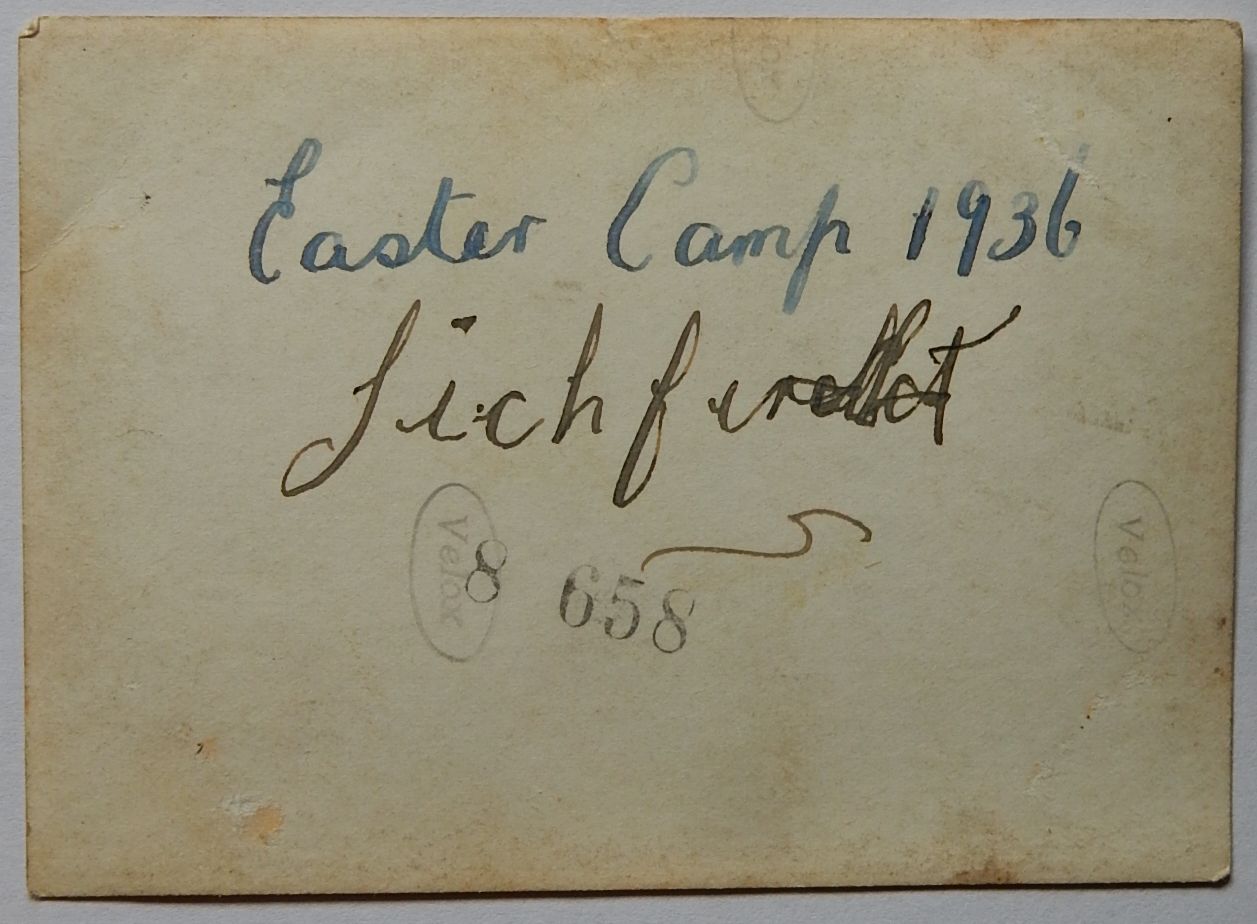 Easter Camp 1936
Velox
8 658
Velox